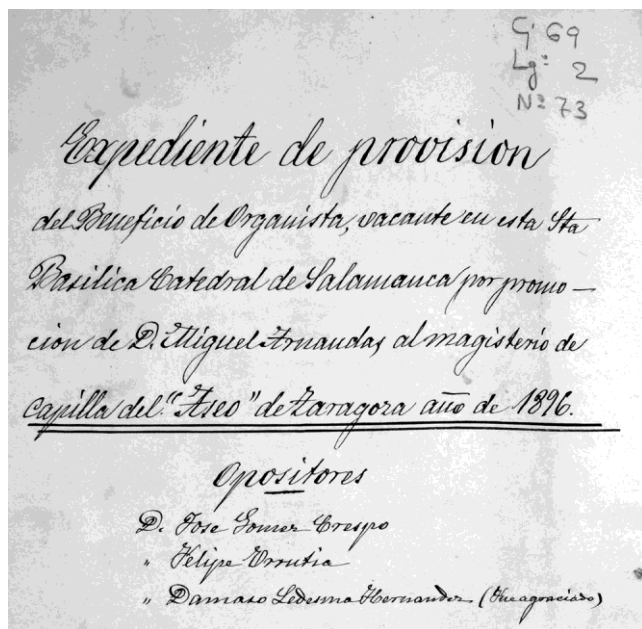 Cj. 69
Lg: 2
Nº 73
Expediente de provision
del Beneficio de Organista, vacante en esta Sta
Basilica Catedral de Salamanca por promo-
cion de D. Miguel Arnaudas al magisterio de
capilla del "Aseo" de Zaragoza año de 1896.
Opositores
D. Jose Gomez Crespo
" Felipe Urrutia
" Damaso Ledesma Hernandez (Fue agraciado)